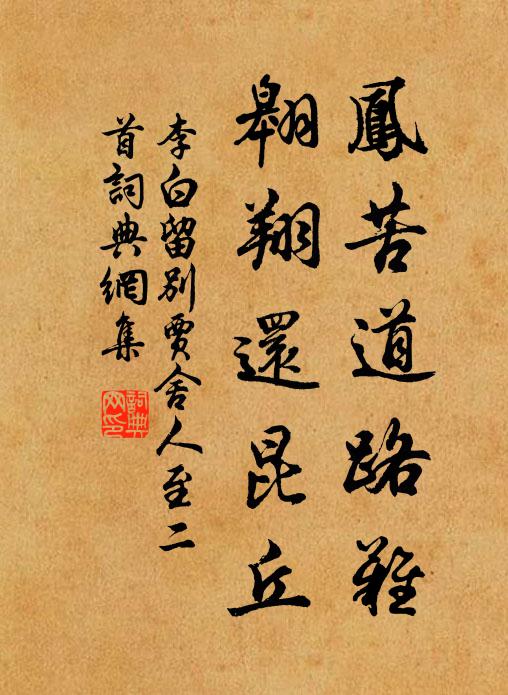 鳳苦道路難
翱翔還昆丘
李白留別賈舍人至二
首詞典網集
詞典
网印